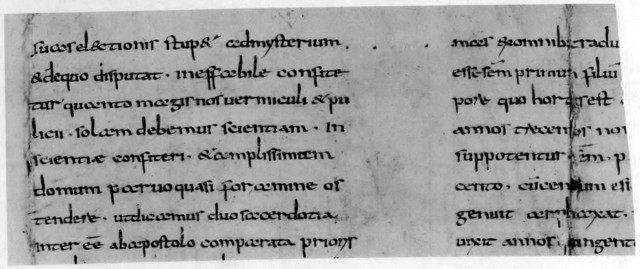 suas electionis stup& admysterium
&dequo disputat · ineffabile confite
tur quanto magis nos uermiculi & pu
licii · solam debemus scientiam · In
scientiæ confiteri · & amplissimam
domum paruo quasi foramine os
tendere · utdicamus duo sacerdotia
inter eē abapostolo comparata prioris
&omnib; tradu
esse sem primum filiu
pore quo est
annos trecentos non
suppotentur ēm · p
cento · centum
genuit arphaxat ·
uixit annos quingent